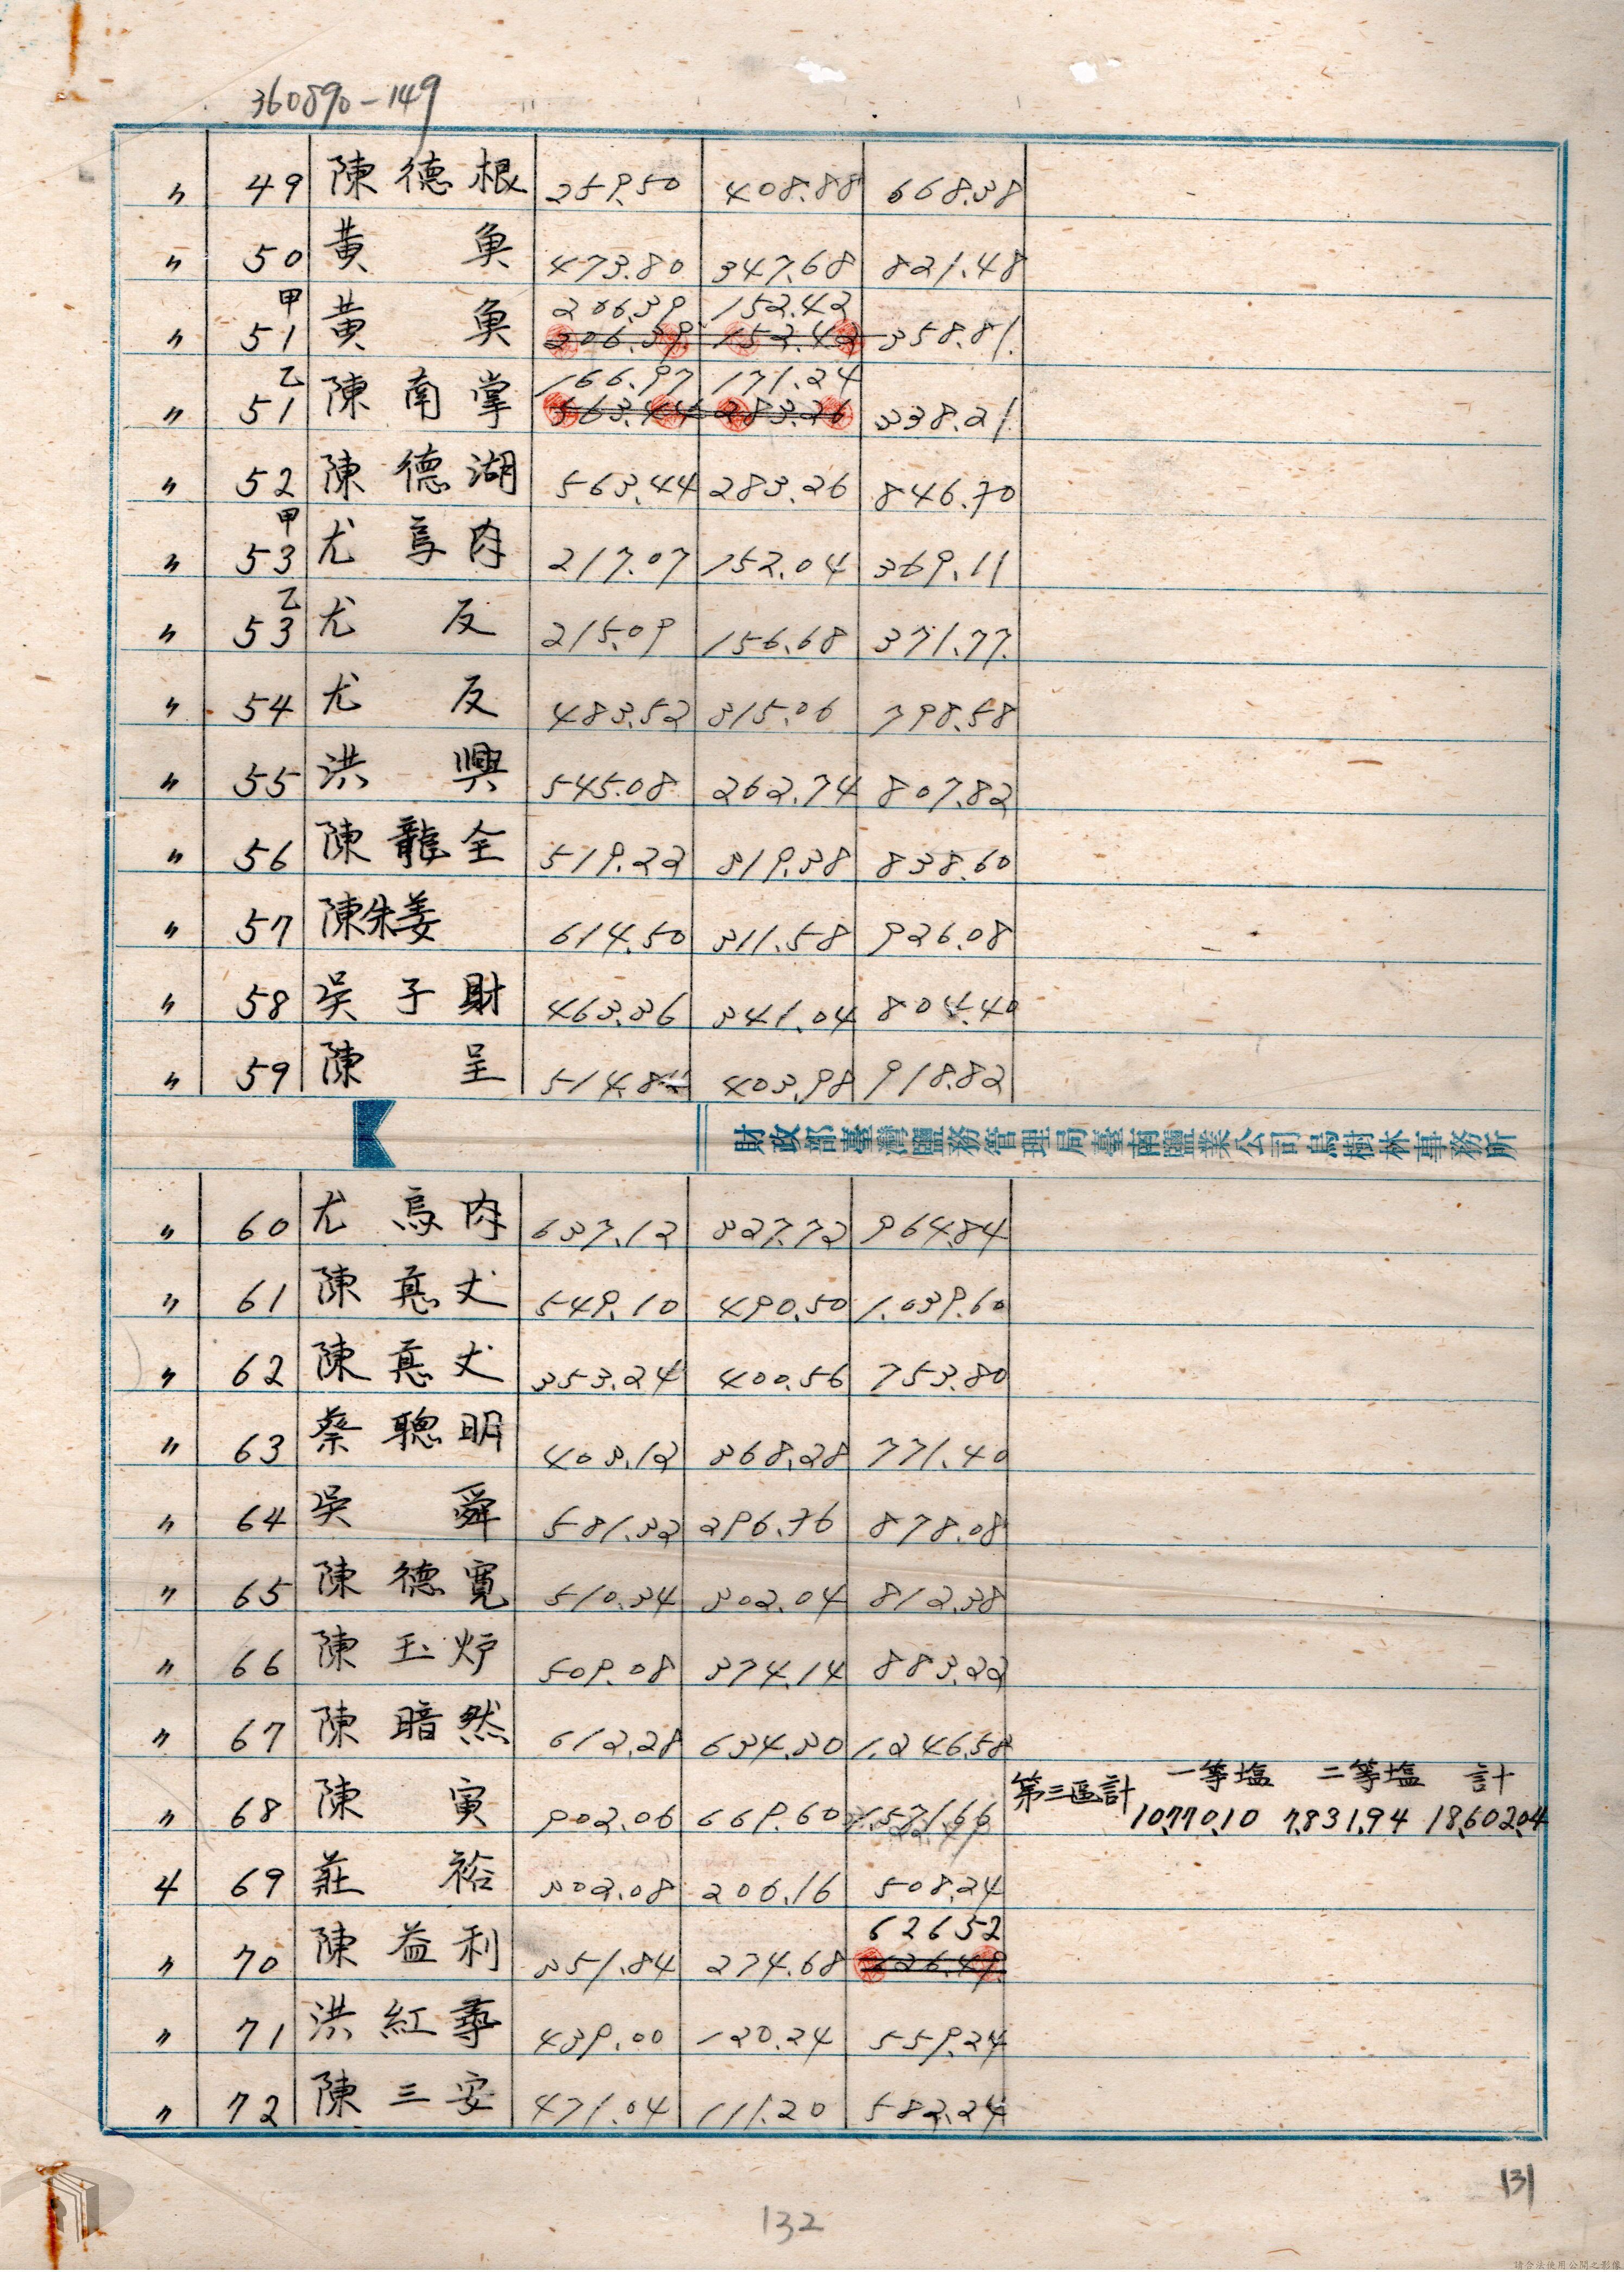 360890-149
〃 49 陳德根 259.50 408.88 668.38
〃 50 黃魚 473.80 347.68 821.48
〃 甲51 黃魚 206.39 152.42 358.81
206.39 152.42
〃 乙51 陳南掌 166.97 171.24 338.21
563.44 283.26
〃 52 陳德湖 563.44 283.26 846.70
〃 甲53 尤烏肉 217.07 152.04 369.11
〃 乙53 尤反 215.09 156.68 371.77
〃 54 尤反 483.52 315.06 798.58
〃 55 洪興 545.08 262.74 807.82
〃 56 陳龍全 519.22 319.38 838.60
〃 57 陳朱姜 614.50 311.58 926.08
〃 58 吳子財 463.36 341.04 804.40
〃 59 陳呈 514.84 403.98 918.82
財政部臺灣鹽務管理局臺南鹽業公司烏樹林事務所
〃 60 尤烏肉 637.12 327.72 964.84
〃 61 陳慐丈 549.10 490.50 1.039.60
〃 62 陳慐丈 353.24 400.56 753.80
〃 63 蔡聰明 403.12 368.28 771.40
〃 64 吳舜 581.32 296.76 878.08
〃 65 陳德寬 510.34 302.04 812.38
〃 66 陳玉炉 509.08 374.14 883.22
〃 67 陳暗然 612.28 634.30 1.246.58
〃 68 陳寅 902.06 669.60 1.571.66 第三區計 一等塩 二等塩 計
10,770.10 7,831.94 18,602.04
4 69 莊裕 302.08 206.16 508.24
〃 70 陳益利 351.84 274.68 626.52
626.49
〃 71 洪紅 439.00 120.24 559.24
〃 72 陳三安 471.04 111.20 582.24
131
132
請合法使用公開之影像